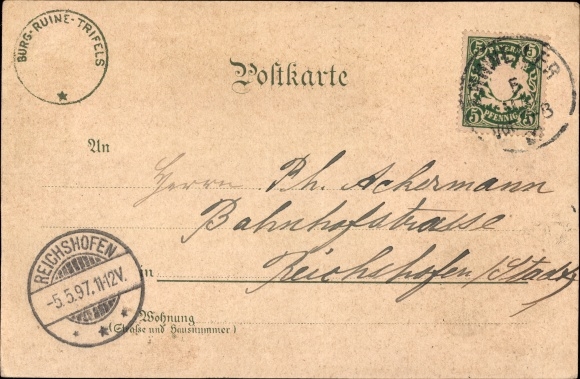 BURG-RUINE-TRIFELS
Postkarte
5 BAYERN 5
5 PFENNIG 5
An
Herrn Ph. Ackermann
Bahnhofstrasse
in Reichshofen /Stadt
REICHSHOFEN
-5.5.97.11-12V.
Wohnung
(Straße und Hausnummer)